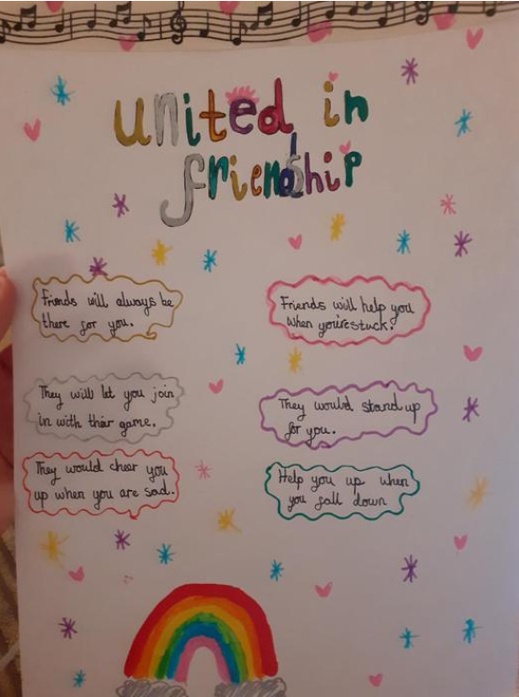 united in
friendship
Friends will always be
there for you.
Friends will help you
when you're stuck.
They will let you join
in with thier game.
They would stand up
for you.
They would chear you
up when you are sad.
Help you up when
you fall down